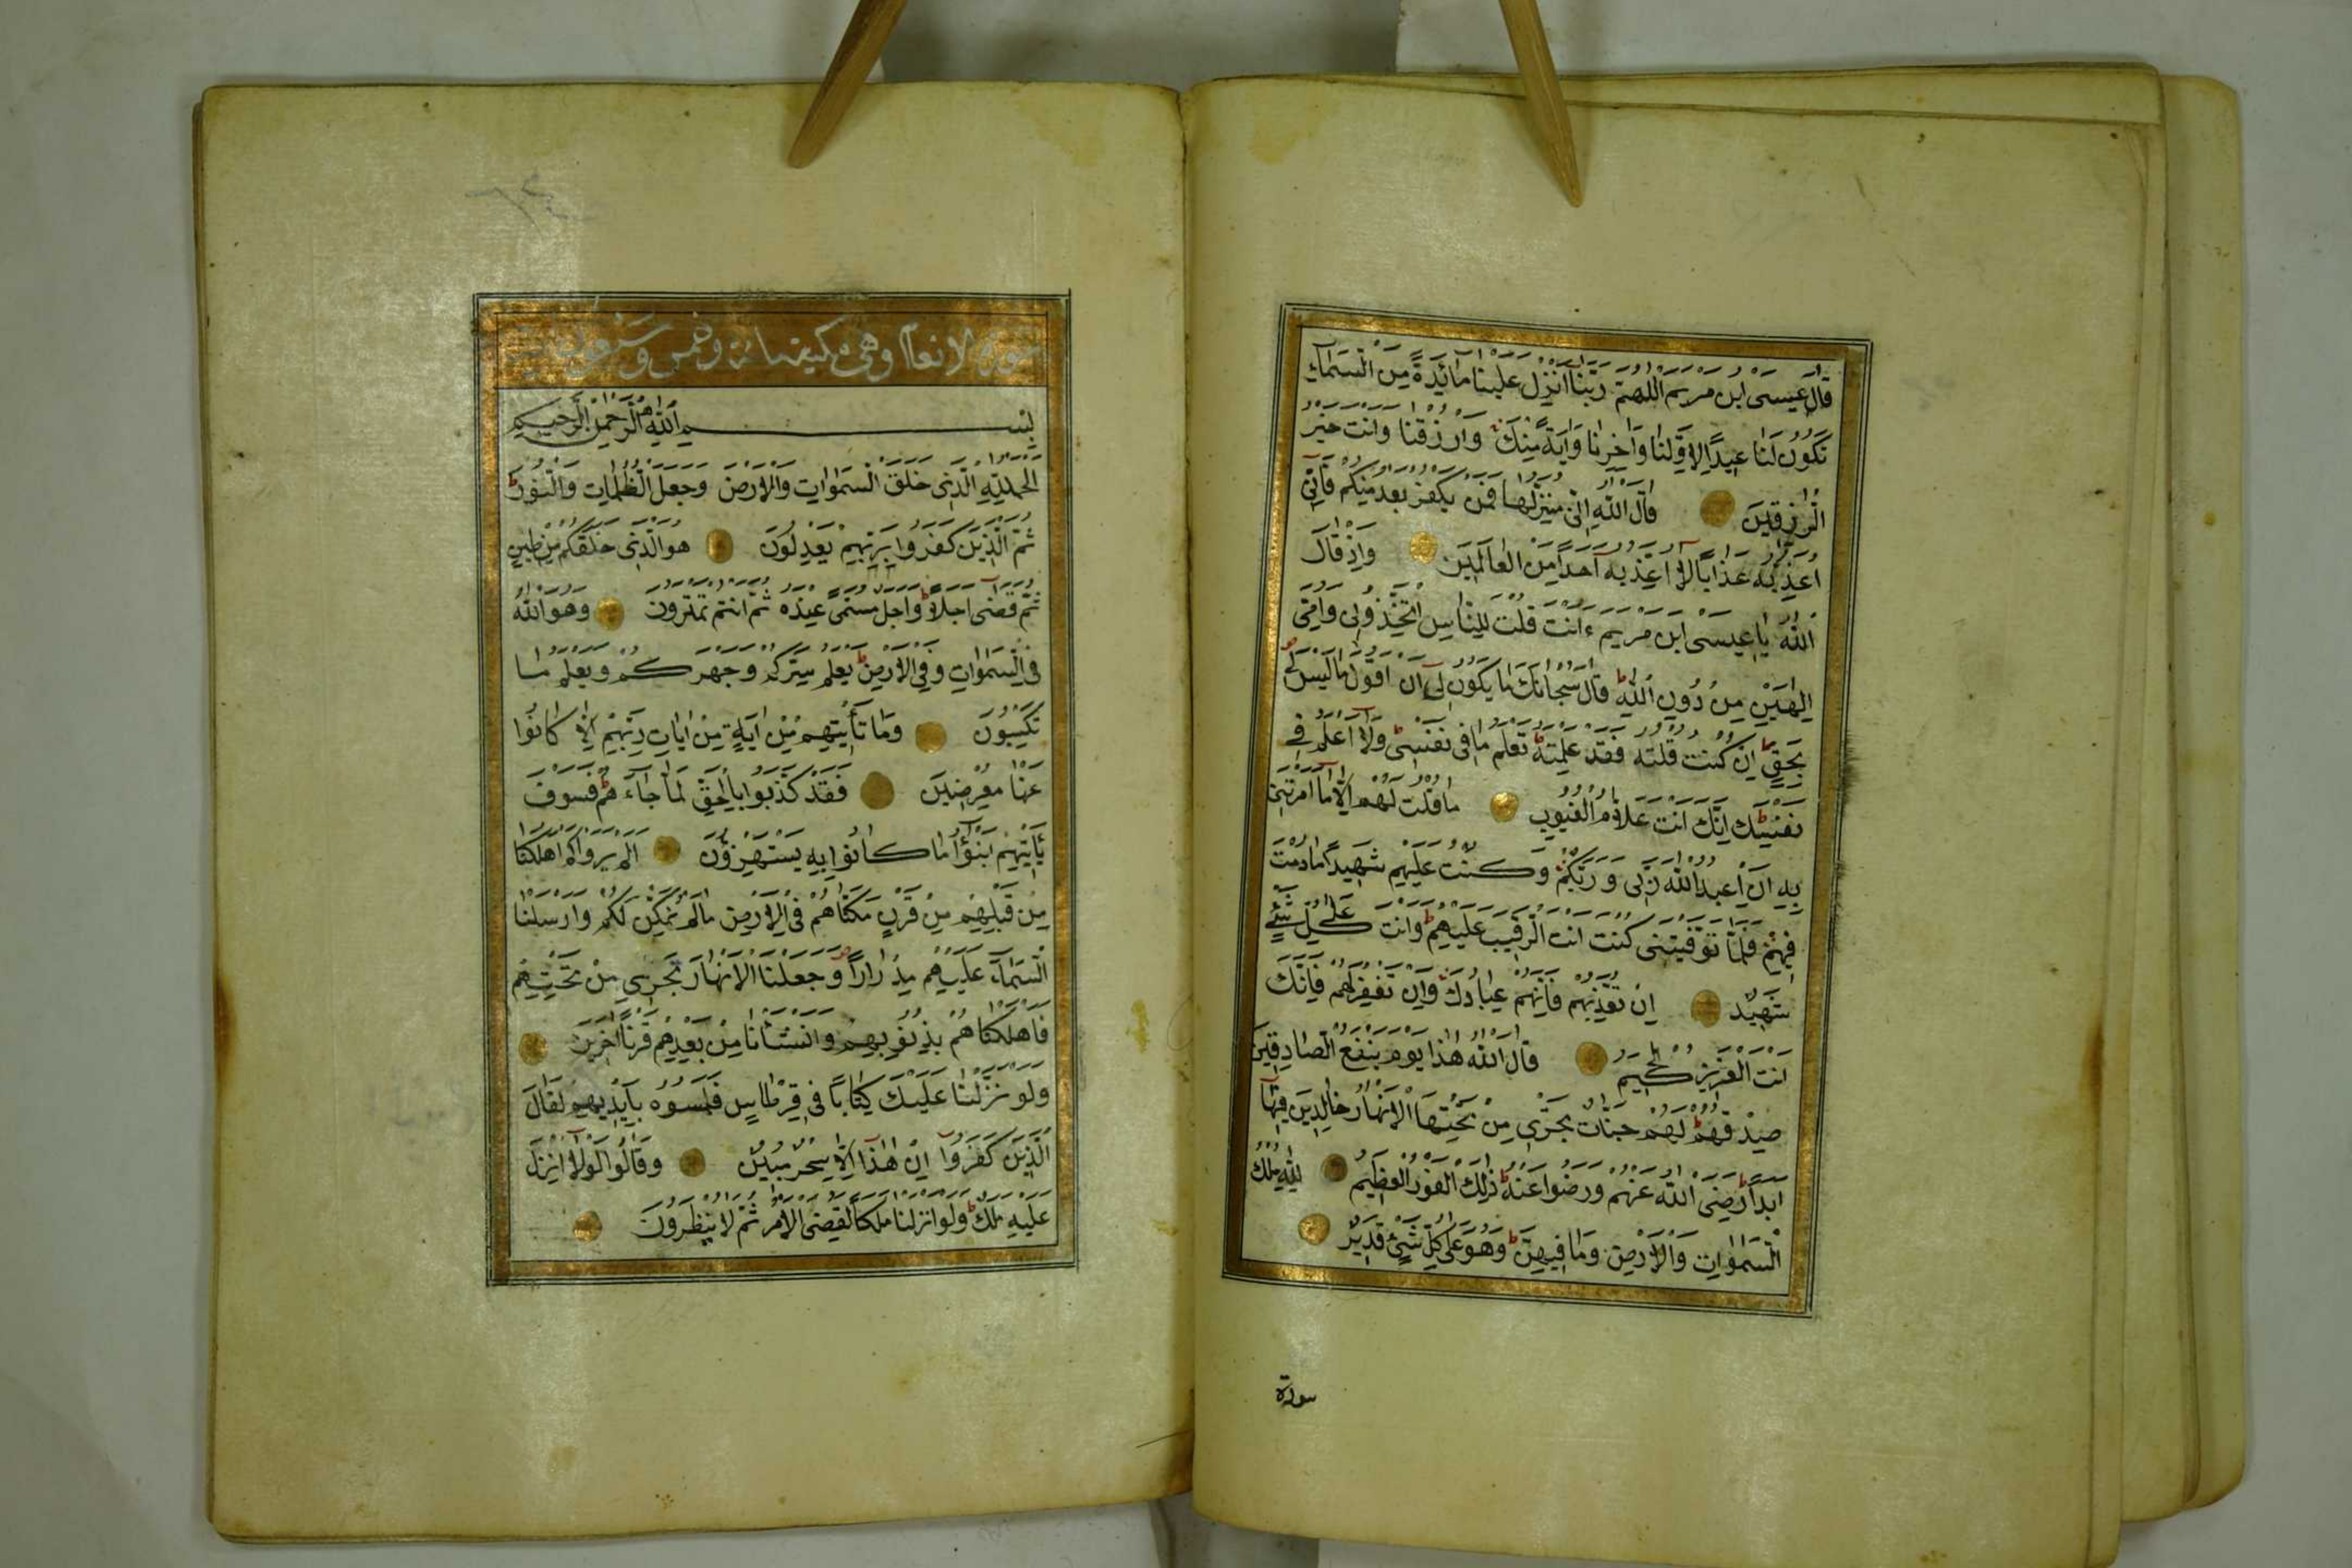 قَالَ عِيسَى ابْنُ مَرْيَمَ اللّٰهُمَّ رَبَّنَا اَنْزِلْ عَلَيْنَا مَائِدَةً مِنَ السَّمَاءِ
تَكُونُ لَنَا عِيدًا لِاَوَّلِنَا وَاٰخِرِنَا وَاٰيَةً مِنْكَ وَارْزُقْنَا وَاَنْتَ خَيْرُ
الرَّازِقِينَ قَالَ اللّٰهُ اِنِّى مُنَزِّلُهَا عَلَيْكُمْ فَمَنْ يَكْفُرْ بَعْدُ مِنْكُمْ فَاِنِّى
اُعَذِّبُهُ عَذَابًا لَا اُعَذِّبُهُ اَحَدًا مِنَ الْعَالَمِينَ وَاِذْ قَالَ
اللّٰهُ يَا عِيسَى ابْنَ مَرْيَمَ ءَاَنْتَ قُلْتَ لِلنَّاسِ اتَّخِذُونِى وَاُمِّىَ
اِلٰهَيْنِ مِنْ دُونِ اللّٰهِ قَالَ سُبْحَانَكَ مَا يَكُونُ لِى اَنْ اَقُولَ مَا لَيْسَ لِى
بِحَقٍّ اِنْ كُنْتُ قُلْتُهُ فَقَدْ عَلِمْتَهُ تَعْلَمُ مَا فِى نَفْسِى وَلَا اَعْلَمُ مَا فِى
نَفْسِكَ اِنَّكَ اَنْتَ عَلَّامُ الْغُيُوبِ مَا قُلْتُ لَهُمْ اِلَّا مَا اَمَرْتَنِى
بِهِ اَنِ اعْبُدُوا اللّٰهَ رَبِّى وَرَبَّكُمْ وَكُنْتُ عَلَيْهِمْ شَهِيدًا مَا دُمْتُ
فِيهِمْ فَلَمَّا تَوَفَّيْتَنِى كُنْتَ اَنْتَ الرَّقِيبَ عَلَيْهِمْ وَاَنْتَ عَلٰى كُلِّ شَىْءٍ
شَهِيدٌ اِنْ تُعَذِّبْهُمْ فَاِنَّهُمْ عِبَادُكَ وَاِنْ تَغْفِرْ لَهُمْ فَاِنَّكَ
اَنْتَ الْعَزِيزُ الْحَكِيمُ قَالَ اللّٰهُ هٰذَا يَوْمُ يَنْفَعُ الصَّادِقِينَ
صِدْقُهُمْ لَهُمْ جَنَّاتٌ تَجْرِى مِنْ تَحْتِهَا الْاَنْهَارُ خَالِدِينَ فِيهَا
اَبَدًا رَضِىَ اللّٰهُ عَنْهُمْ وَرَضُوا عَنْهُ ذٰلِكَ الْفَوْزُ الْعَظِيمُ لِلّٰهِ مُلْكُ
السَّمٰوَاتِ وَالْاَرْضِ وَمَا فِيهِنَّ وَهُوَ عَلٰى كُلِّ شَىْءٍ قَدِيرٌ
سورة
سورة الانعام وهى مكية مائة وخمس وستون
بِسْمِ اللّٰهِ الرَّحْمٰنِ الرَّحِيمِ
الْحَمْدُ لِلّٰهِ الَّذِى خَلَقَ السَّمٰوَاتِ وَالْاَرْضَ وَجَعَلَ الظُّلُمَاتِ وَالنُّورَ
ثُمَّ الَّذِينَ كَفَرُوا بِرَبِّهِمْ يَعْدِلُونَ هُوَ الَّذِى خَلَقَكُمْ مِنْ طِينٍ
ثُمَّ قَضٰى اَجَلًا وَاَجَلٌ مُسَمًّى عِنْدَهُ ثُمَّ اَنْتُمْ تَمْتَرُونَ وَهُوَ اللّٰهُ
فِى السَّمٰوَاتِ وَفِى الْاَرْضِ يَعْلَمُ سِرَّكُمْ وَجَهْرَكُمْ وَيَعْلَمُ مَا
تَكْسِبُونَ وَمَا تَأْتِيهِمْ مِنْ اٰيَةٍ مِنْ اٰيَاتِ رَبِّهِمْ اِلَّا كَانُوا
عَنْهَا مُعْرِضِينَ فَقَدْ كَذَّبُوا بِالْحَقِّ لَمَّا جَاءَهُمْ فَسَوْفَ
يَأْتِيهِمْ اَنْبٰؤُا مَا كَانُوا بِهِ يَسْتَهْزِؤُنَ اَلَمْ يَرَوْا كَمْ اَهْلَكْنَا
مِنْ قَبْلِهِمْ مِنْ قَرْنٍ مَكَّنَّاهُمْ فِى الْاَرْضِ مَا لَمْ نُمَكِّنْ لَكُمْ وَاَرْسَلْنَا
السَّمَاءَ عَلَيْهِمْ مِدْرَارًا وَجَعَلْنَا الْاَنْهَارَ تَجْرِى مِنْ تَحْتِهِمْ
فَاَهْلَكْنَاهُمْ بِذُنُوبِهِمْ وَاَنْشَأْنَا مِنْ بَعْدِهِمْ قَرْنًا اٰخَرِينَ
وَلَوْ نَزَّلْنَا عَلَيْكَ كِتَابًا فِى قِرْطَاسٍ فَلَمَسُوهُ بِاَيْدِيهِمْ لَقَالَ
الَّذِينَ كَفَرُوا اِنْ هٰذَا اِلَّا سِحْرٌ مُبِينٌ وَقَالُوا لَوْلَا اُنْزِلَ
عَلَيْهِ مَلَكٌ وَلَوْ اَنْزَلْنَا مَلَكًا لَقُضِىَ الْاَمْرُ ثُمَّ لَا يُنْظَرُونَ